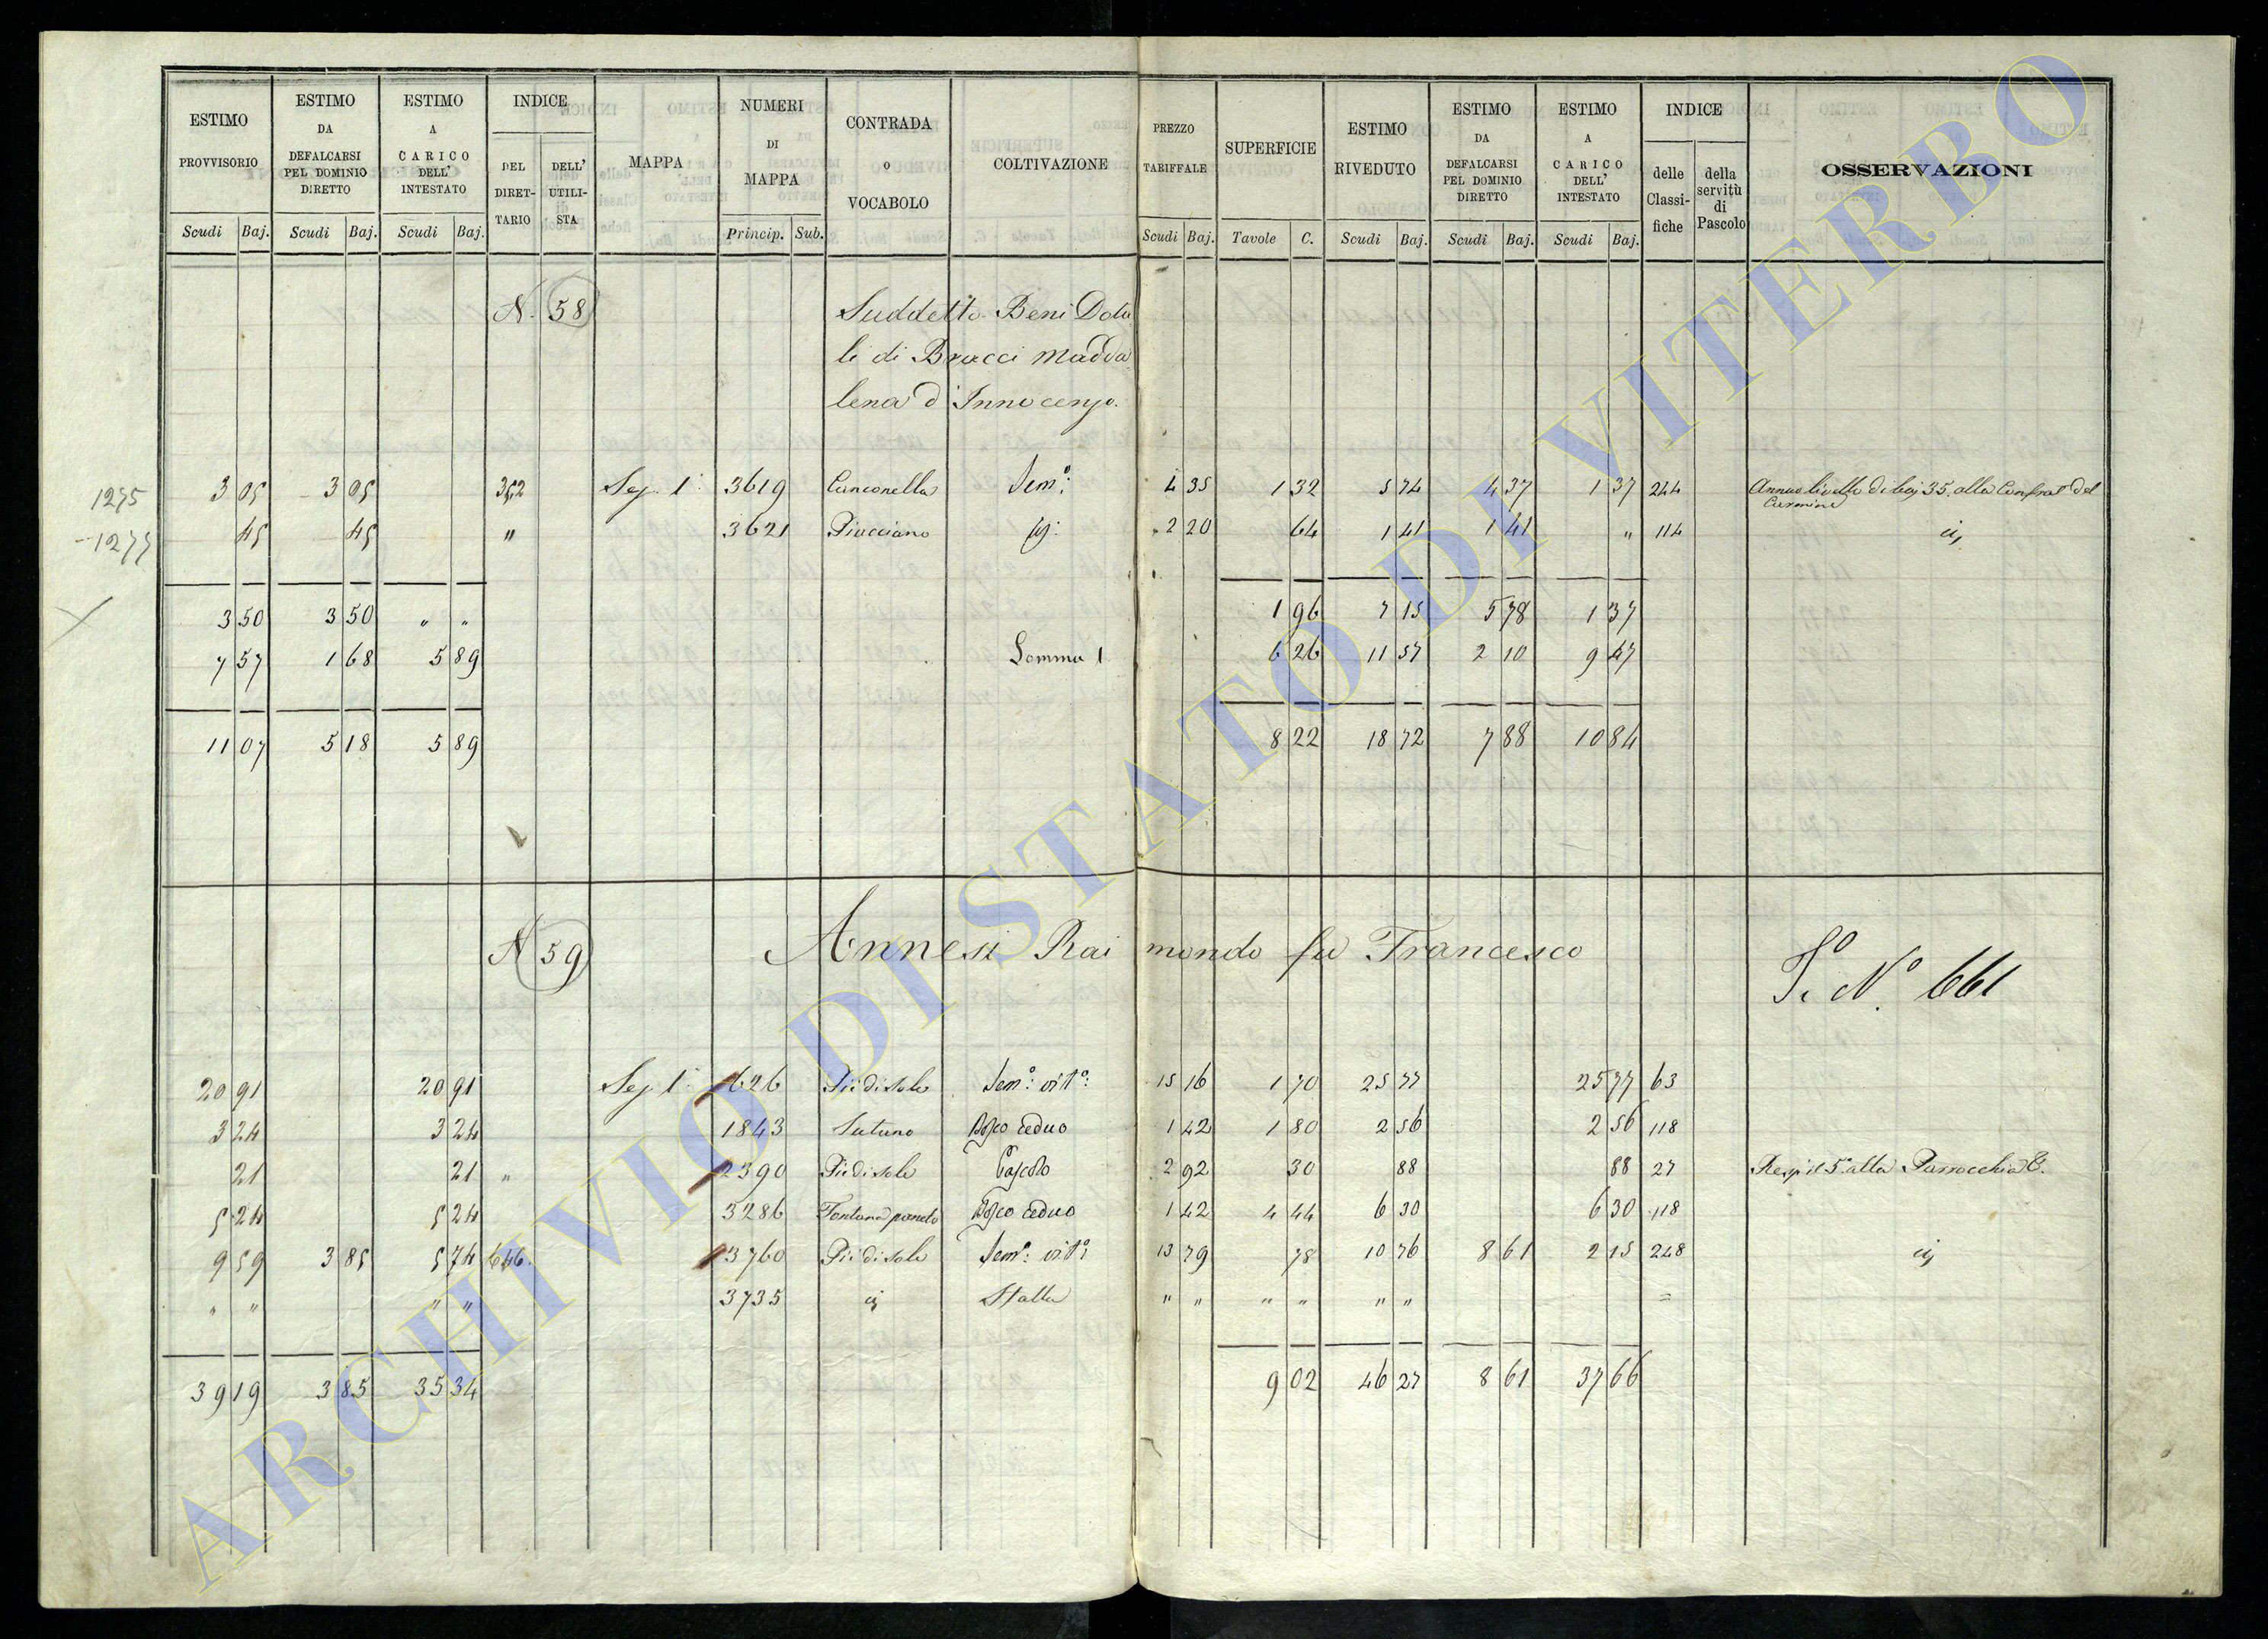 ESTIMO PROVVISORIO | ESTIMO DA DEFALCARSI PEL DOMINIO DIRETTO | ESTIMO A CARICO DELL' INTESTATO | INDICE | MAPPA | NUMERI DI MAPPA | CONTRADA o VOCABOLO | COLTIVAZIONE | PREZZO TARIFFALE | SUPERFICIE | ESTIMO RIVEDUTO | ESTIMO DA DEFALCARSI PEL DOMINIO DIRETTO | ESTIMO A CARICO DELL' INTESTATO | INDICE | OSSERVAZIONI
DEL DIRET-TARIO | DELL' UTILI-STA | delle Classi-fiche | della servitù di Pascolo
Scudi | Baj. | Scudi | Baj. | Scudi | Baj. | Princip. | Sub. | Scudi | Baj. | Tavole | C. | Scudi | Baj. | Scudi | Baj. | Scudi | Baj.
N. 58 Suddetto Beni Dota
li di Bracci Madda
lena d' Innocenzo.
1275 3 05 3 05 352 Sez. 1ª 3619 Canconella Sem.º 4 35 1 32 5 74 4 37 1 37 244 Annuo livello di baj 35. alla Confrat. del
Carmine
1277 45 45 " 3621 Piacciano 2 20 64 1 41 1 41 " 114
3 50 3 50 " " 1 96 7 15 5 78 1 37
7 57 1 68 5 89 Somma 1 6 26 11 57 2 10 9 47
11 07 5 18 5 89 8 22 18 72 7 88 10 84
N 59 Annesi Raimondo fu Francesco
Nº 661
20 91 20 91 Sez 1ª 626 Piè di sole Sem.º vit.º 15 16 1 70 25 77 25 77 63
3 24 3 24 1843 Sutuno Bosco ceduo 1 42 1 80 2 56 2 56 118
21 21 " 2390 Piè di sole Pascolo 2 92 30 88 88 27 Resp. il 5º alla Parrocchia
5 24 5 24 3286 Fontana Bosco ceduo 1 42 4 44 6 30 6 30 118
9 59 3 85 5 74 646 3760 Piè di sole Sem.º vit.º 13 79 78 10 76 8 61 2 15 248
" " " " 3735 Stalla " " " " " " =
39 19 3 85 35 34 9 02 46 27 8 61 37 66
ARCHIVIO DI STATO DI VITERBO